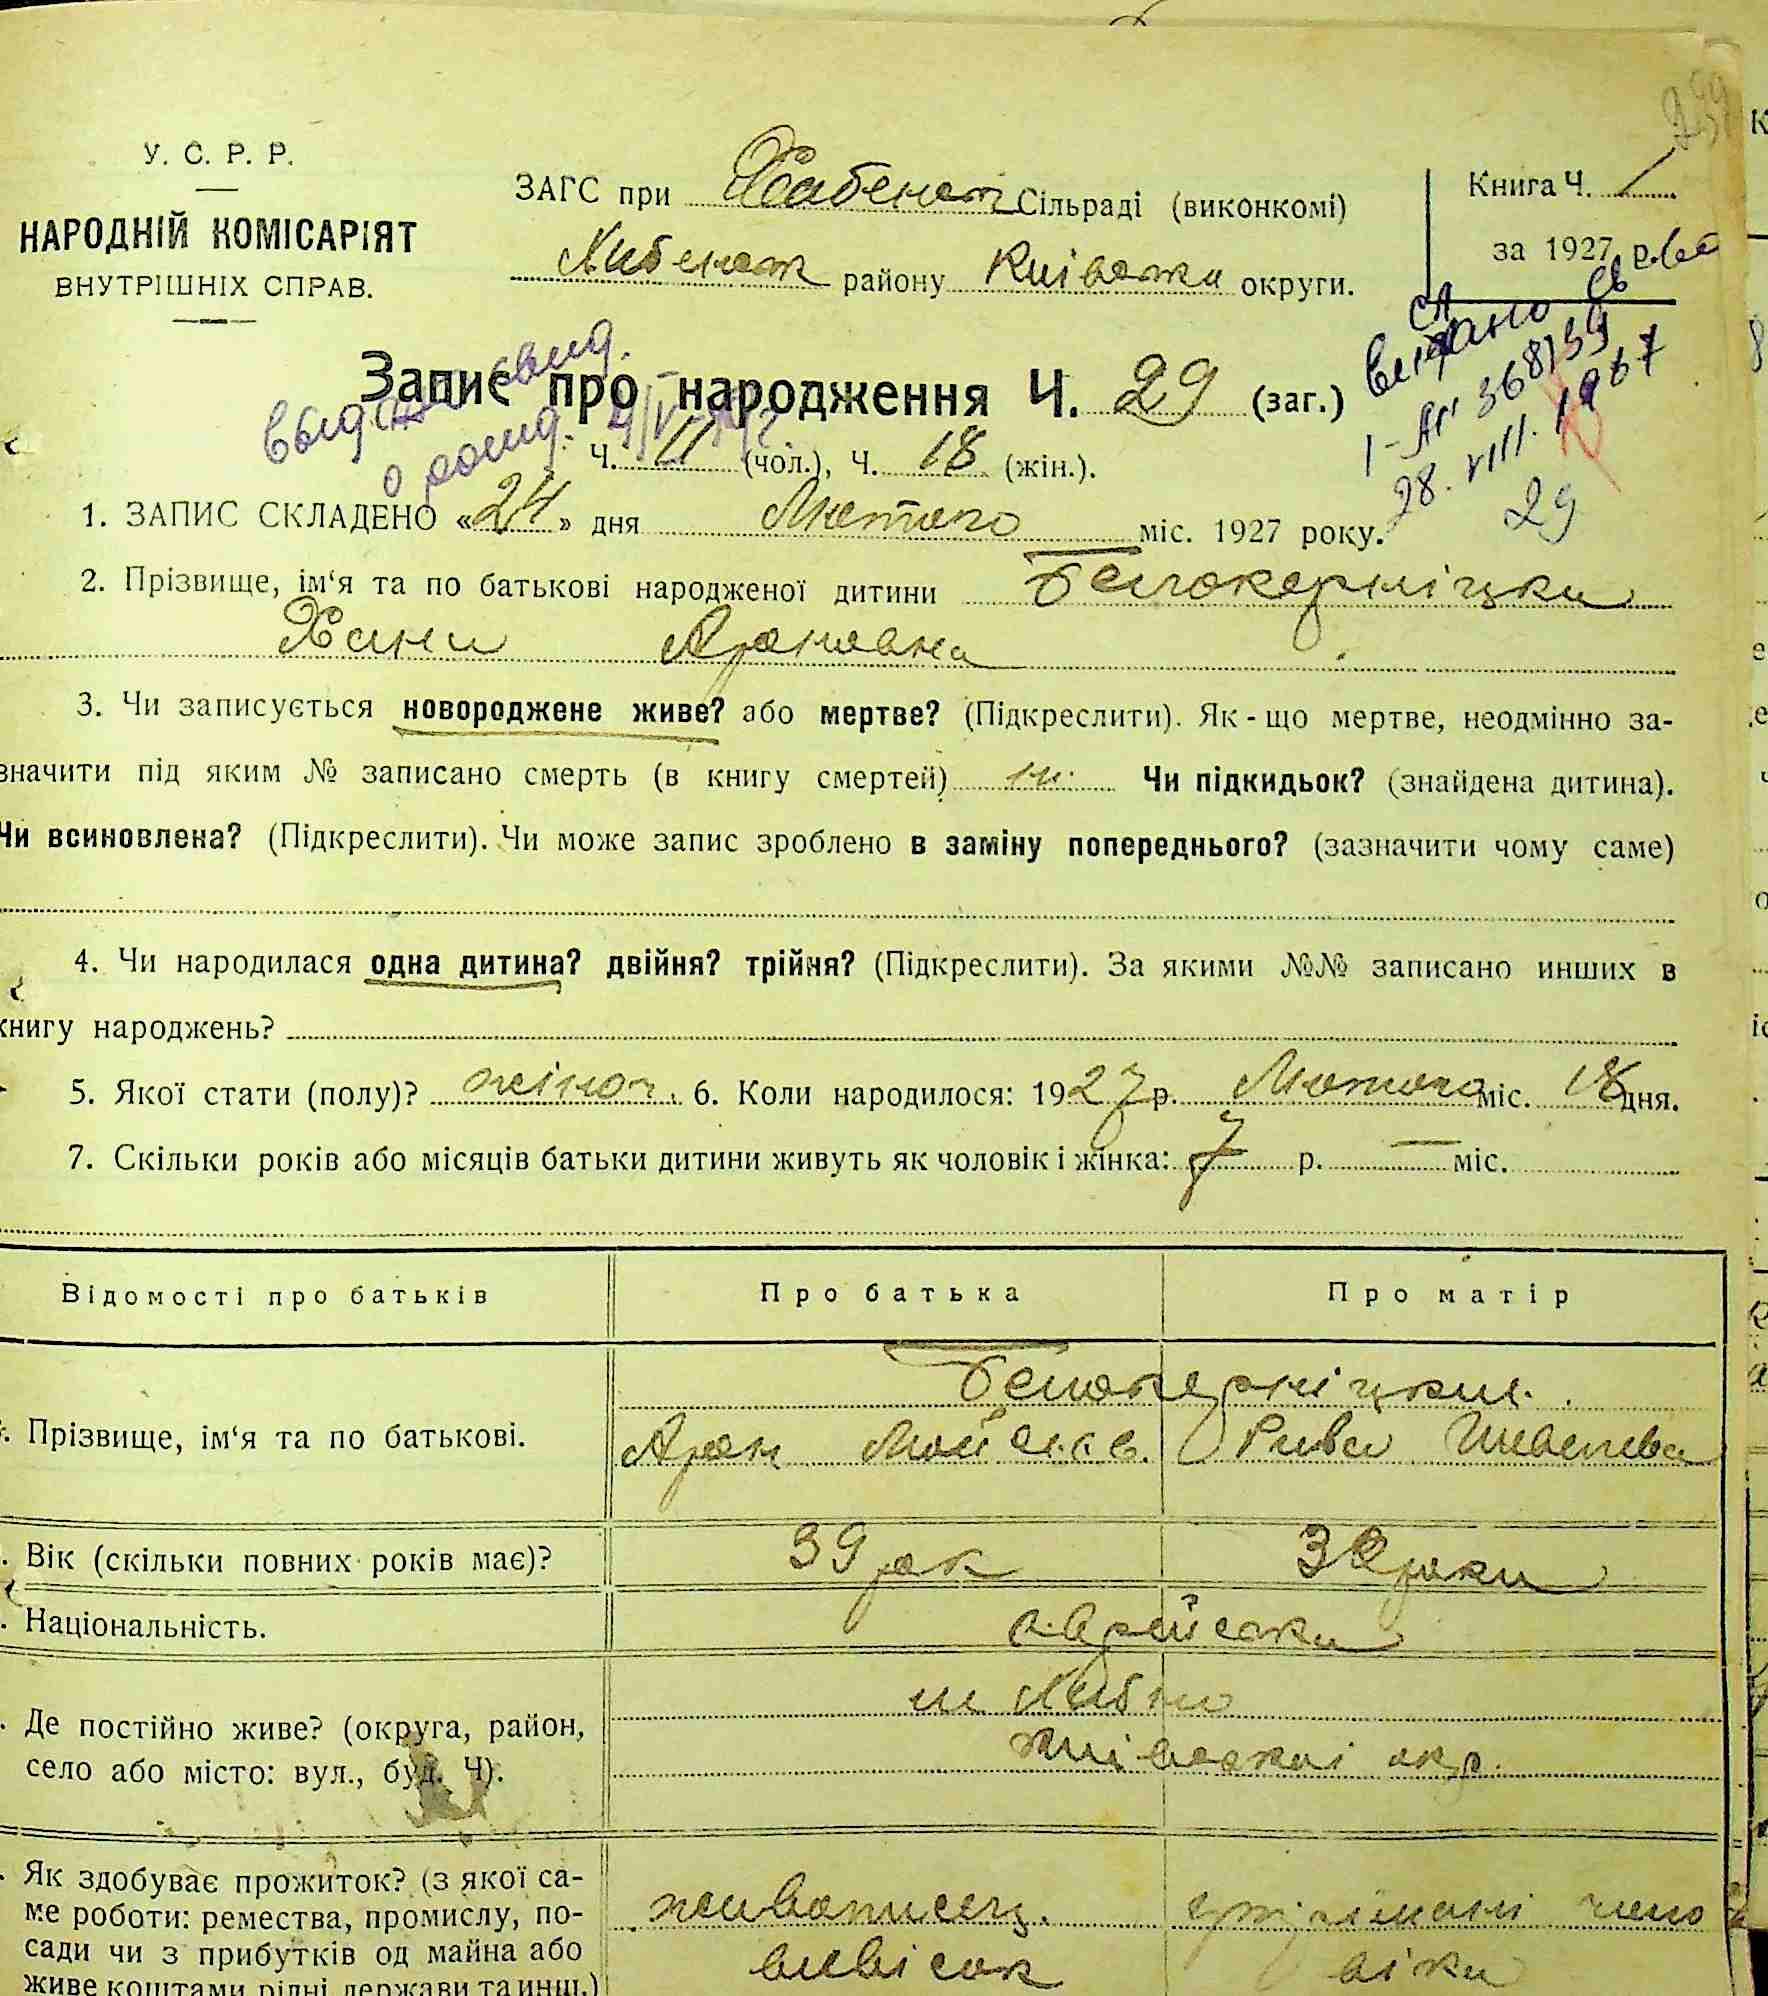 У. С. Р. Р.
НАРОДНІЙ КОМІСАРІЯТ
ВНУТРІШНІХ СПРАВ.
ЗАГС при Хабенск Сільраді (виконкомі)
району Київська округи.
Книга Ч. 1
за 1927 р.
Запис про народження Ч. 29 (заг.)
Ч. 11 (чол.), Ч. 18 (жін.).
выдано свид.
о рожд.
видано
І-АП 368139
28.VIII.1967
29
1. ЗАПИС СКЛАДЕНО «24» дня Лютого міс. 1927 року.
2. Прізвище, ім‘я та по батькові народженої дитини Белокерніцка
Хана Ароновна
3. Чи записується новороджене живе? або мертве? (Підкреслити). Як-що мертве, неодмінно за-
значити під яким № записано смерть (в книгу смертей) Чи підкидьок? (знайдена дитина).
Чи всиновлена? (Підкреслити). Чи може запис зроблено в заміну попереднього? (зазначити чому саме)
4. Чи народилася одна дитина? двійня? трійня? (Підкреслити). За якими №№ записано инших в
книгу народжень?
5. Якої стати (полу)? жіноч. 6. Коли народилося: 1927 р. Лютого міс. 18 дня.
7. Скільки років або місяців батьки дитини живуть як чоловік і жінка: 7 р. — міс.
Відомості про батьків Про батька Про матір
Белокерніцкие
Прізвище, ім‘я та по батькові. Арон Мойсеев. Рива
Вік (скільки повних років має)? 39 рок роки
Національність. Єврейська
Де постійно живе? (округа, район,
село або місто: вул., буд. Ч).
м Хабно
Київської окр.
Як здобуває прожиток? (з якої са-
ме роботи: ремества, промислу, по-
сади чи з прибутків од майна або
живе коштами рідні, держави та инш.)
живописец
вивісок
утриманні чоло
віка